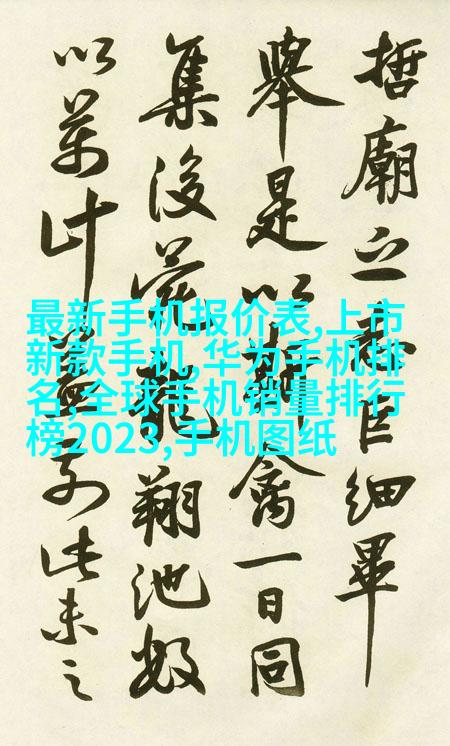 哲廟之臣細畢
舉是以斯禽一日同
集後苑龍翔池殆
以萬計蓋此未之
最新手机报价表,上市
新款手机,华为手机排
名,全球手机销量排行
榜2023,手机图纸